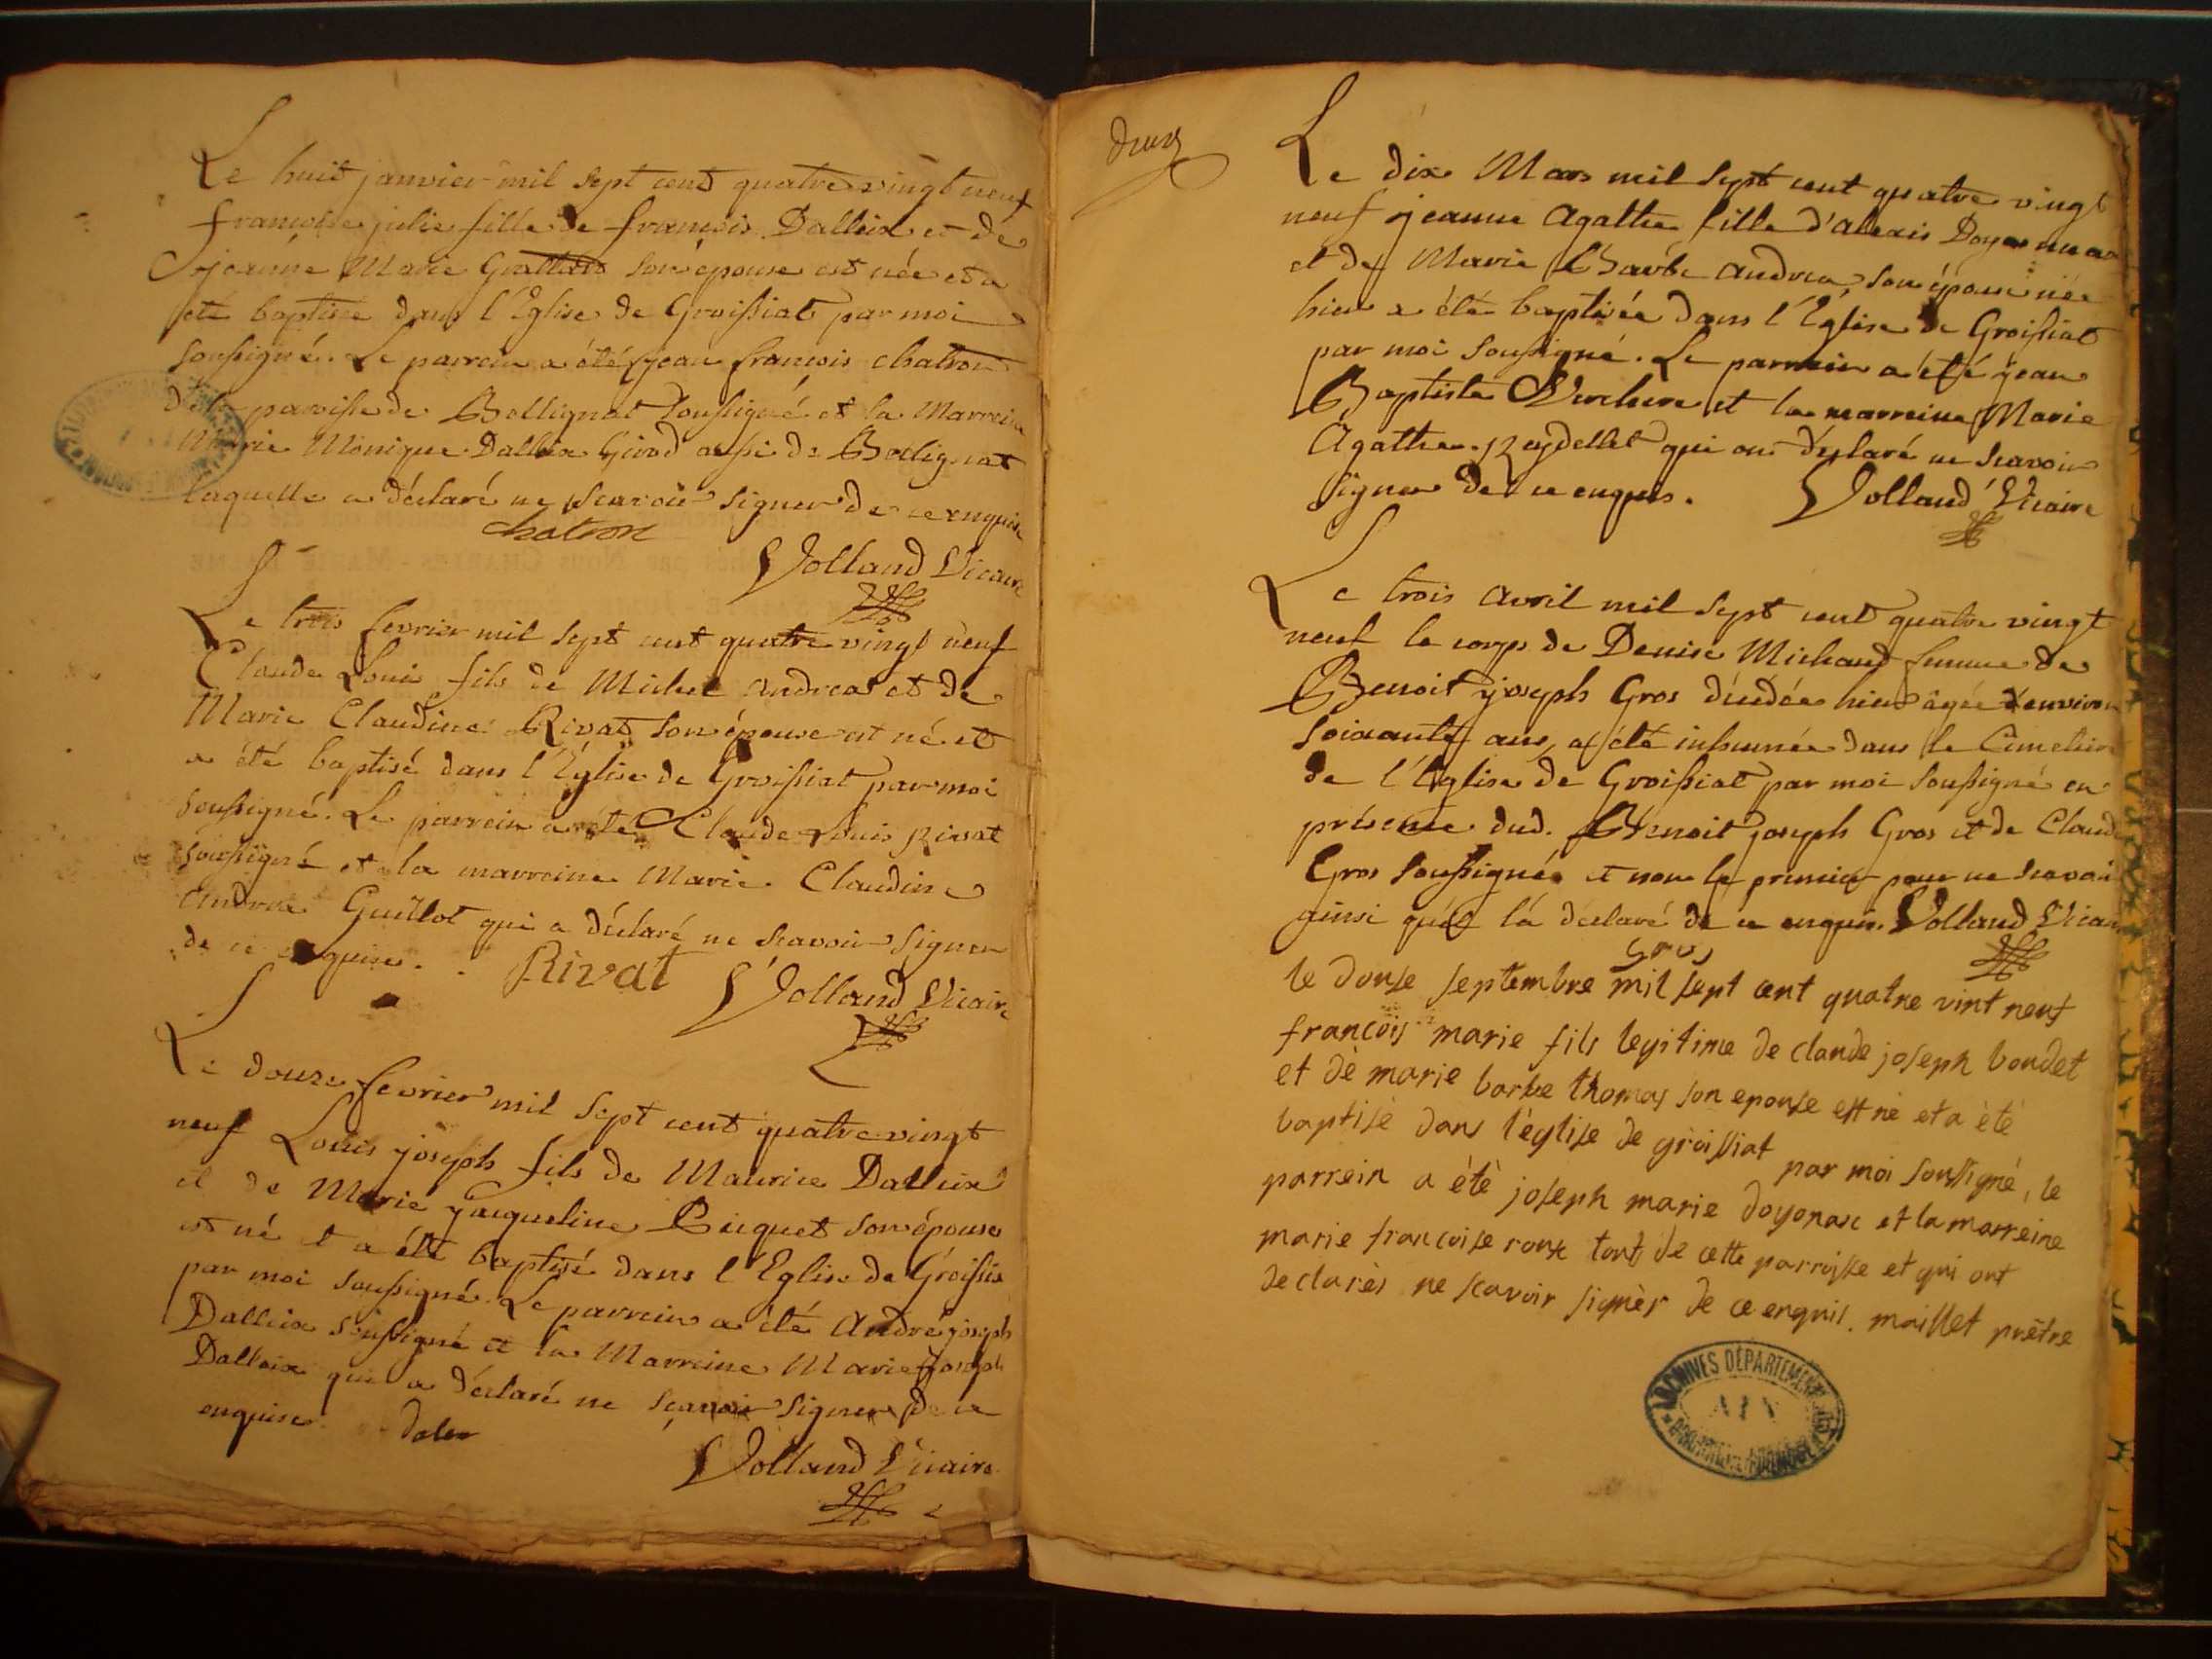 Le huit janvier mil sept cent quatre vingt neuf
françoise julie fille de françois Dalleix et de
jeanne Marie Grattard son épouse est née et a
eté baptisée dans l'Eglise de Groissiat par moi
soussigné. Le parrein a été jean françois chatron
de la paroisse de Bellignat soussigné et la Marreine
Marie Monique Dalleix Girod aussi de Bellignat
laquelle a déclaré ne scavoir signer de ce enquise
chatron
Volland Vicaire
Le trois fevrier mil sept cent quatre vingt neuf
Claude Louis fils de Michel andrea et de
Marie Claudine Rivat son épouse est né et
a été baptisé dans l'Eglise de Groissiat par moi
soussigné. Le parrein a été Claude Louis Rivat
soussigné et la marreine Marie Claudine
andrea Guillot qui a déclaré ne scavoir signer
de ce enquise. Rivat Volland Vicaire
Le douze fevrier mil sept cent quatre vingt
neuf Louis joseph fils de Maurice Dalleix
et de Marie jacqueline Picquet son épouse
est né et a été baptisé dans l'Eglise de Groissia
par moi soussigné. Le parrein a été André joseph
Dalleix soussigné et la Marreine Marie joseph
Dalleix qui a déclaré ne sçavoir signer de ce
enquise
Volland Vicaire
Le dix Mars mil sept cent quatre vingt
neuf jeanne Agathe fille d'alexis
et de Marie Barbe andrea son épouse née
hier a été baptisée dans l'Église de Groissiat
par moi soussigné. Le parrein a été jean
Baptiste Verchere et la marreine Marie
Agathe Reydellet qui ont déclaré ne scavoir
signer de ce enquis. Volland Vicaire
Le trois avril mil sept cent quatre vingt
neuf le corps de Denise Michaud femme de
Benoit joseph Gros décédée hier âgée d'environ
soixante ans, a été inhumée dans le Cimetiere
de l'Eglise de Groissiat par moi soussigné en
présence dud. Benoit joseph Gros et de Claude
Gros soussigné et non le premier pour ne scavoir
ainsi qu'il l'a déclaré de ce enquis. Volland Vicaire
Gros
le douse septembre mil sept cent quatre vint neuf
francois marie fils legitime de claude joseph boudet
et dè marie barbe thomas son epouse est nè et a èté
baptisè dans l'èglise de groissiat par moi soussignè, le
parrein a étè joseph marie doyonax et la marreine
marie francoise roux touts de cette parroisse et qui ont
declarès ne scavoir signèr de ce enquis. maillet prêtre
ARCHIVES DÉPARTEMENTALES
AIN